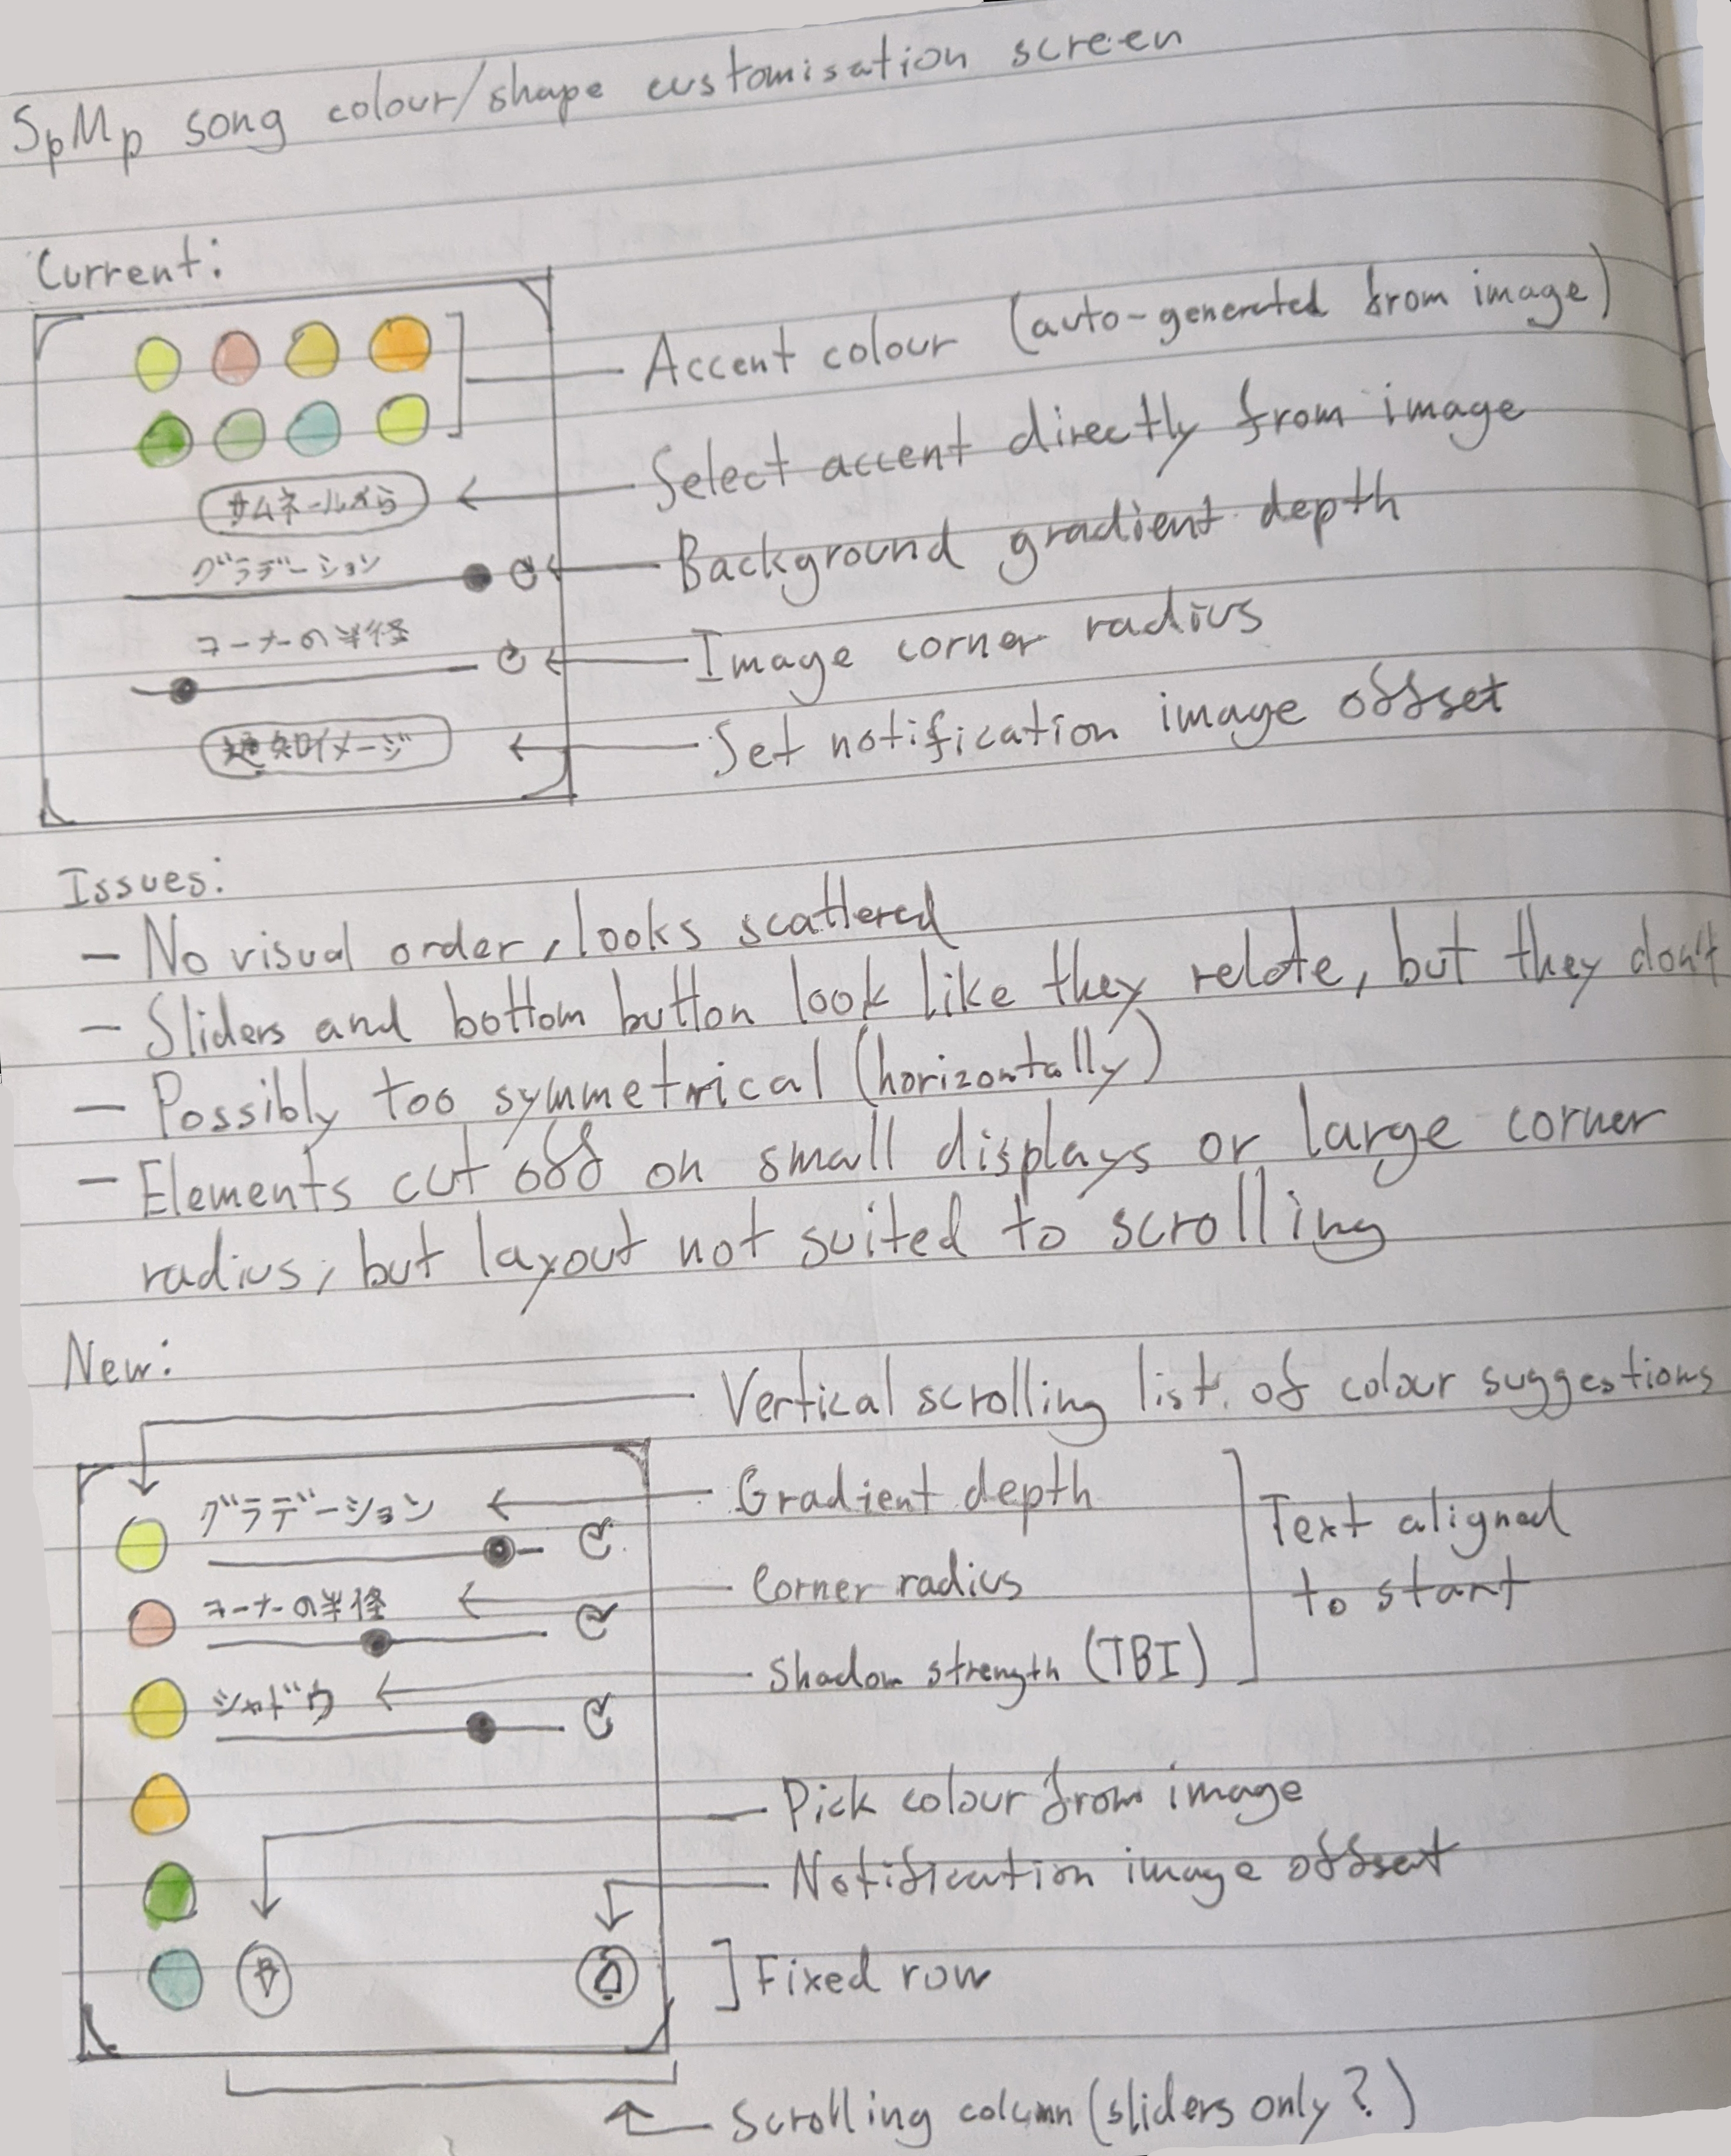 SpMp song colour/shape customisation screen
Current:
Accent colour (auto-generated from image)
Select accent directly from image
サムネールから
Background gradient depth
グラデーション
Image corner radius
コーナーの半径
Set notification image offset
通知イメージ
Issues:
- No visual order, looks scattered
- Sliders and bottom button look like they relate, but they don't
- Possibly too symmetrical (horizontally)
- Elements cut off on small displays or large corner
radius, but layout not suited to scrolling
New:
Vertical scrolling list of colour suggestions
グラデーション
Gradient depth
Text aligned
to start
コーナーの半径
Corner radius
シャドウ
Shadow strength (TBI)
Pick colour from image
Notification image offset
Fixed row
Scrolling column (sliders only?)